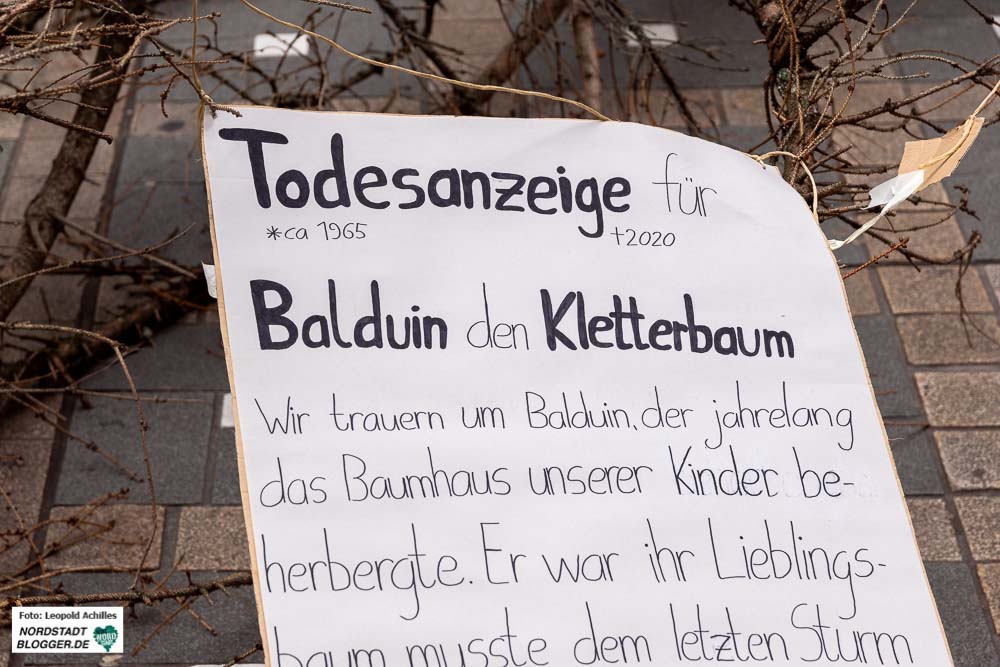 Todesanzeige für
*ca 1965 †2020
Balduin den Kletterbaum
Wir trauern um Balduin, der jahrelang
das Baumhaus unserer Kinder be-
herbergte. Er war ihr Lieblings-
baum musste dem letzten Sturm
Foto: Leopold Achilles
NORDSTADT
BLOGGER.DE